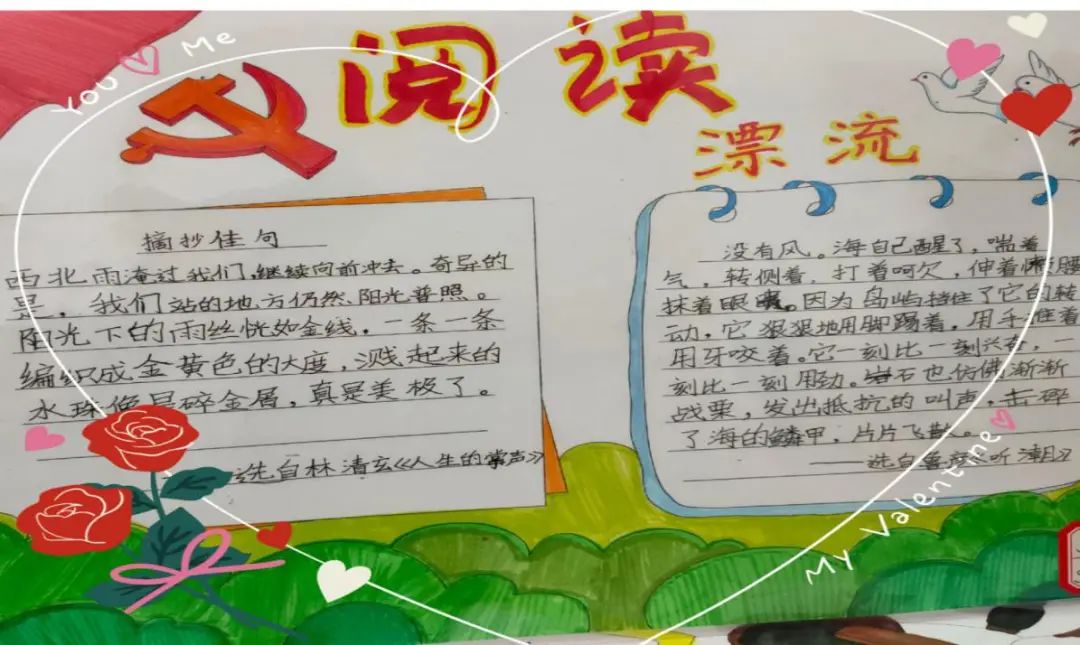 You Me
阅读
漂流
摘抄佳句
西北雨淹过我们,继续向前冲去。奇异的
是,我们站的地方仍然阳光普照。
阳光下的雨丝恍如金线,一条一条
编织成金黄色的大度,溅起来的
水珠像是碎金属,真是美极了。
——选自林清玄《人生的掌声》
没有风。海自己醒了,喘着
气,转侧着,打着呵欠,伸着懒腰
抹着眼睛。因为岛屿挡住了它的转
动,它狠狠地用脚踢着,用手推着
用牙咬着。它一刻比一刻兴奋,一
刻比一刻用劲。岩石也仿佛渐渐
战栗,发出抵抗的叫声,击碎
了海的鳞甲,片片飞散。
——选自鲁彦《听潮》
My Valentine